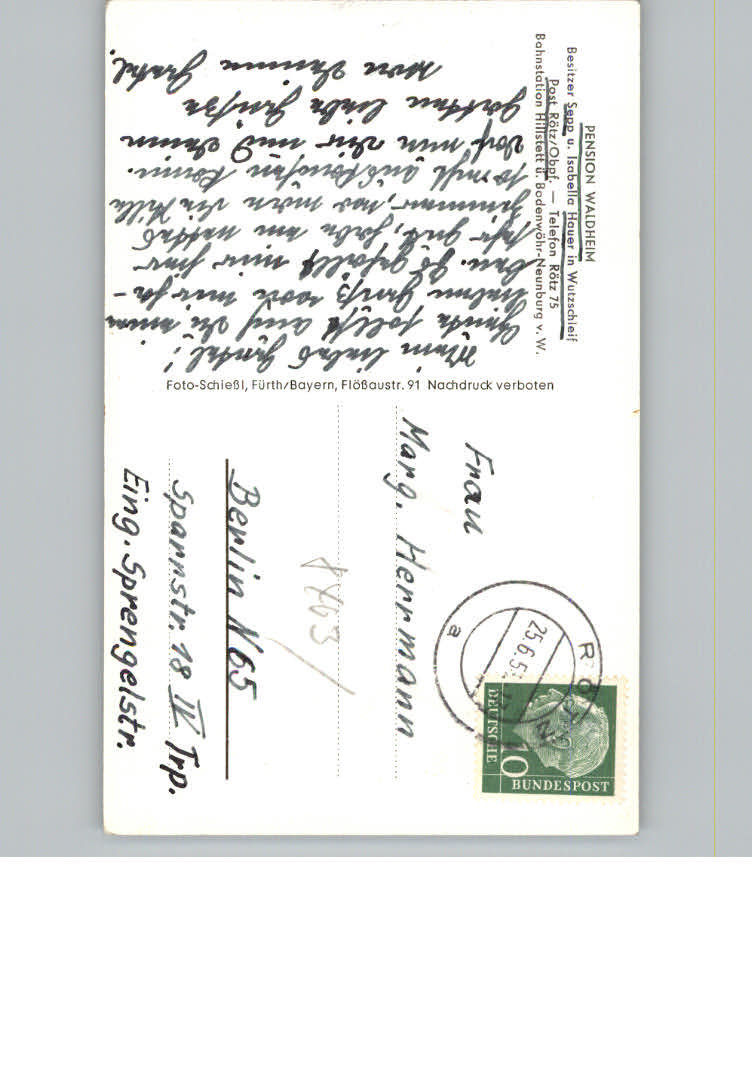 PENSION WALDHEIM
Besitzer Sepp u. Isabella Hauer in Wutzschleif
Post Rötz/Obpf. — Telefon Rötz 75
Bahnstation Hillstett u. Bodenwöhr-Neunburg v. W.
Mein liebes
sollst auch du einen
lieben Gruß von mir ha-
ben. Es gefällt mir hier
sehr gut, habe ein nettes
Zimmer, wo man die Stille
so recht auskosten kann.
nun dir und
liebe Grüße
Gretel.
Foto-Schießl, Fürth/Bayern, Flößaustr. 91 Nachdruck verboten
Frau
Marg. Herrmann
Berlin N 65
Sparrstr. 18 IV Trp.
Eing. Sprengelstr.
25.6.5
a
10
DEUTSCHE
BUNDESPOST